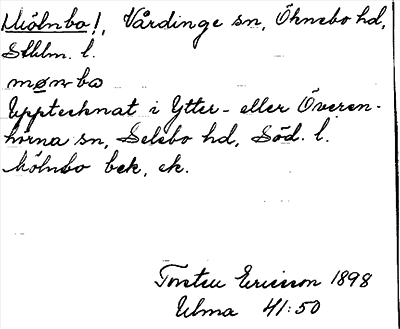 Mölnbo!, Vårdinge sn, Öknebo hd,
Sthlm. l.
mønbo
Upptecknat i Ytter- eller Överen-
hörna sn, Selebo hd, Söd. l.
Mölnbo bek, ek.
Torsten Ericsson 1898
Ulma 41:50